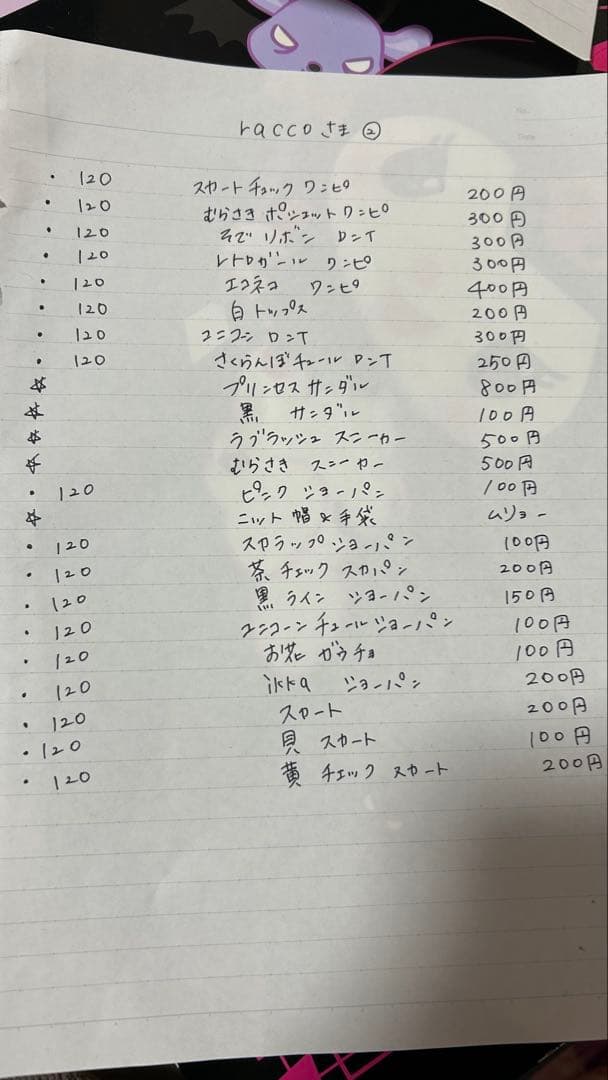 raccoさま ②
・120 スカートチェックワンピ 200円
・120 むらさきポシェットワンピ 300円
・120 そでリボン ロンT 300円
・120 レトロガール ワンピ 300円
・120 エコネコ ワンピ 400円
・120 白トップス 200円
・120 ユニコーン ロンT 300円
・120 さくらんぼチュールロンT 250円
☆ プリンセスサンダル 800円
☆ 黒 サンダル 100円
☆ ラブラッシュ スニーカー 500円
☆ むらさき スニーカー 500円
・120 ピンク ショーパン 100円
☆ ニット帽&手袋 ムリョー
・120 スカラップショーパン 100円
・120 茶チェック スカパン 200円
・120 黒ライン ショーパン 150円
・120 ユニコーンチュールショーパン 100円
・120 お花 ガウチョ 100円
・120 ikka ショーパン 200円
・120 スカート 200円
・120 貝 スカート 100円
・120 黄 チェック スカート 200円